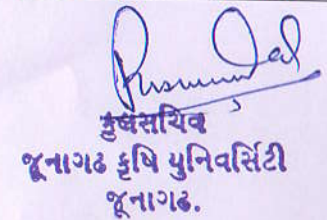 કુલસચિવ
જૂનાગઢ કૃષિ યુનિવર્સિટી
જૂનાગઢ.